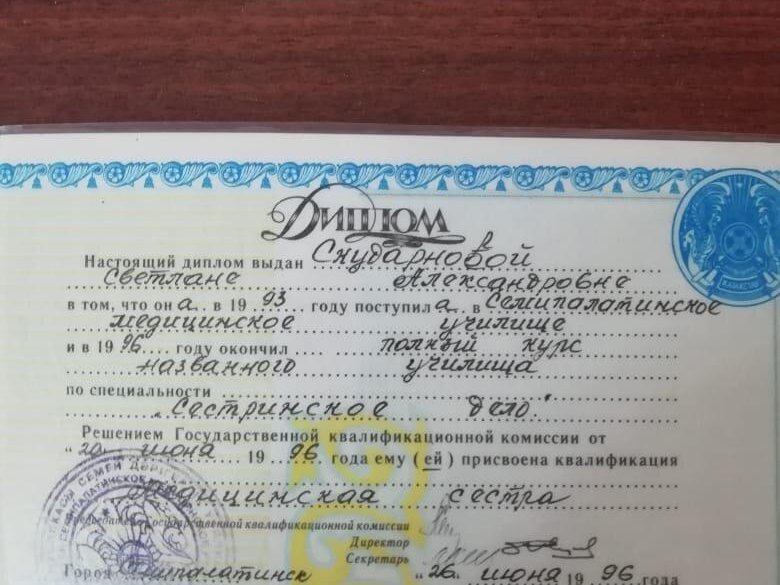 Диплом
Настоящий диплом выдан Скударновой
Светлане Александровне
в том, что она в 1993 году поступила в Семипалатинское
медицинское училище
и в 1996 году окончила полный курс
названного училища
по специальности
"Сестринское дело"
Решением Государственной квалификационной комиссии от
"20" июня 1996 года ему (ей) присвоена квалификация
медицинская сестра
Председатель Государственной квалификационной комиссии
Директор
Секретарь
Город Семипалатинск "26" июня 1996 года